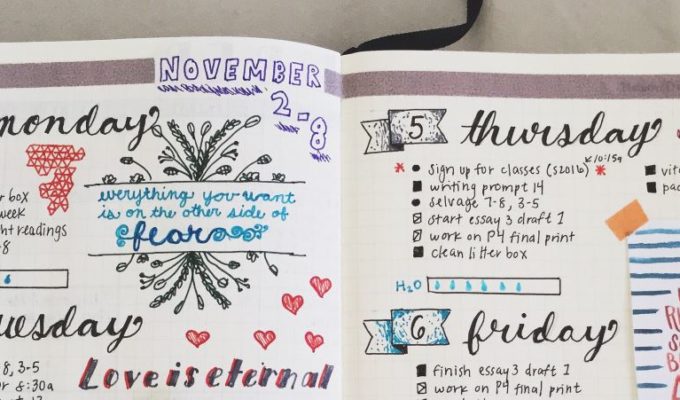 NOVEMBER
2-8
monday
box
week
ht readings
-8
everything you want
is on the other side of
fear
8, 3-5
8:30a
Love is eternal
5 thursday
sign up for classes (S2016) 10:15a
writing prompt 14
selvage 7-8, 3-5
start essay 3 draft 1
work on P4 final print
clean litter box
H2O
6 friday
finish essay 3 draft 1
work on P4 final print
vit
pac